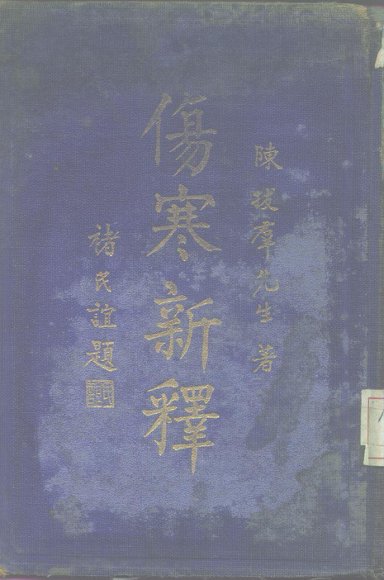 陳拔羣先生著
傷寒新釋
褚民誼題